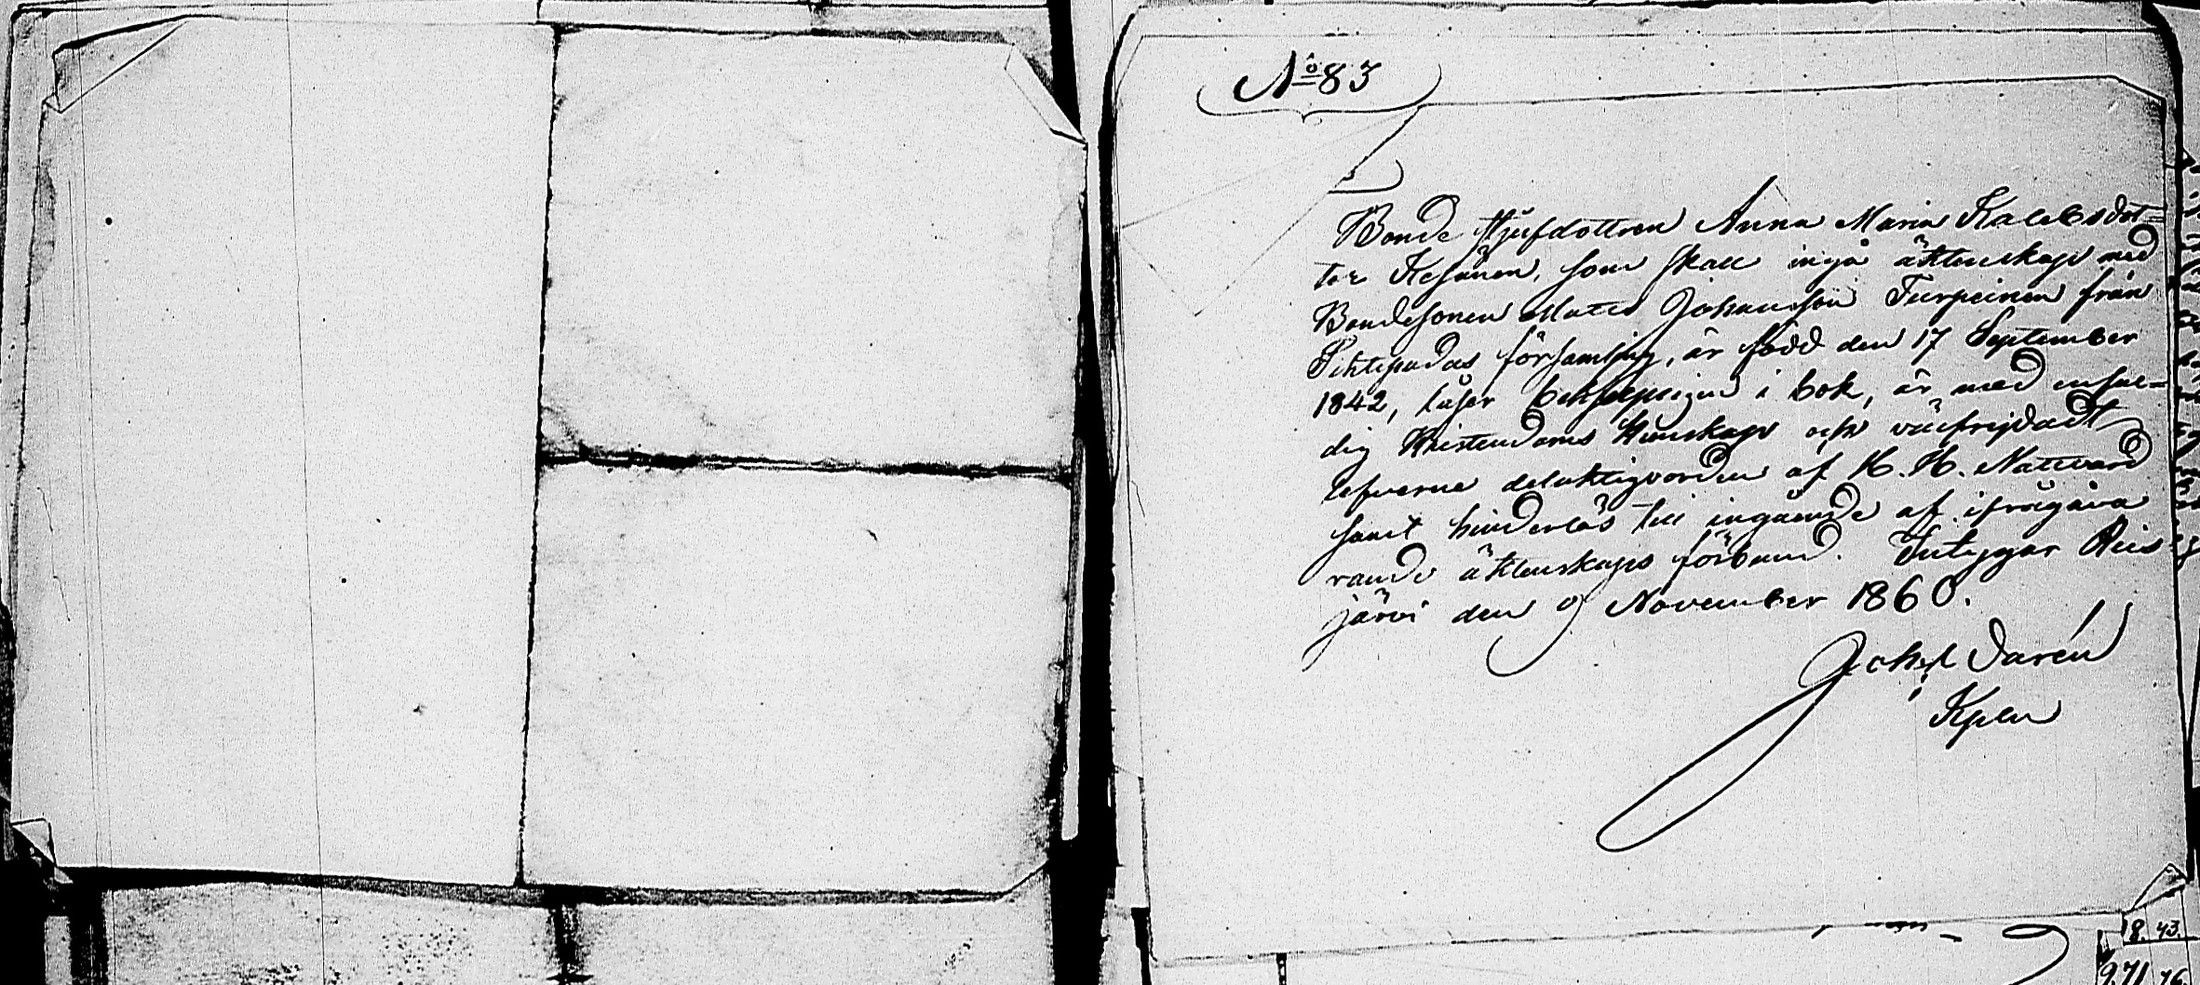 No 83
Bonde styfdottren Anna Maria Kalebsdot=
ter Kesänen, som skall ingå äktenskap med
Bondesonen Mats Johansson Turpeinen från
Pihtipudas församling, är född den 17 September
1842, läser behjelpeligen i bok, är med enfal=
dig Kristendoms kunskap och väl frejdadt
lefverne delaktigvorden af H. H. Nattvard
samt hinderlös till ingående af ifrågava
rande äktenskaps förbund. Intygar Reis
järvi den 9 November 1860.
Joh. Darén
Kpln
18. 43.
271 76